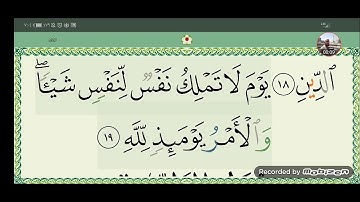 ٱلدِّينِ ١٨ يَوْمَ لَا تَمْلِكُ نَفْسٌ لِّنَفْسٍ شَيْـًٔا ۖ
وَٱلْأَمْرُ يَوْمَئِذٍ لِّلَّهِ ١٩
00:09
Recorded by
Mobizen